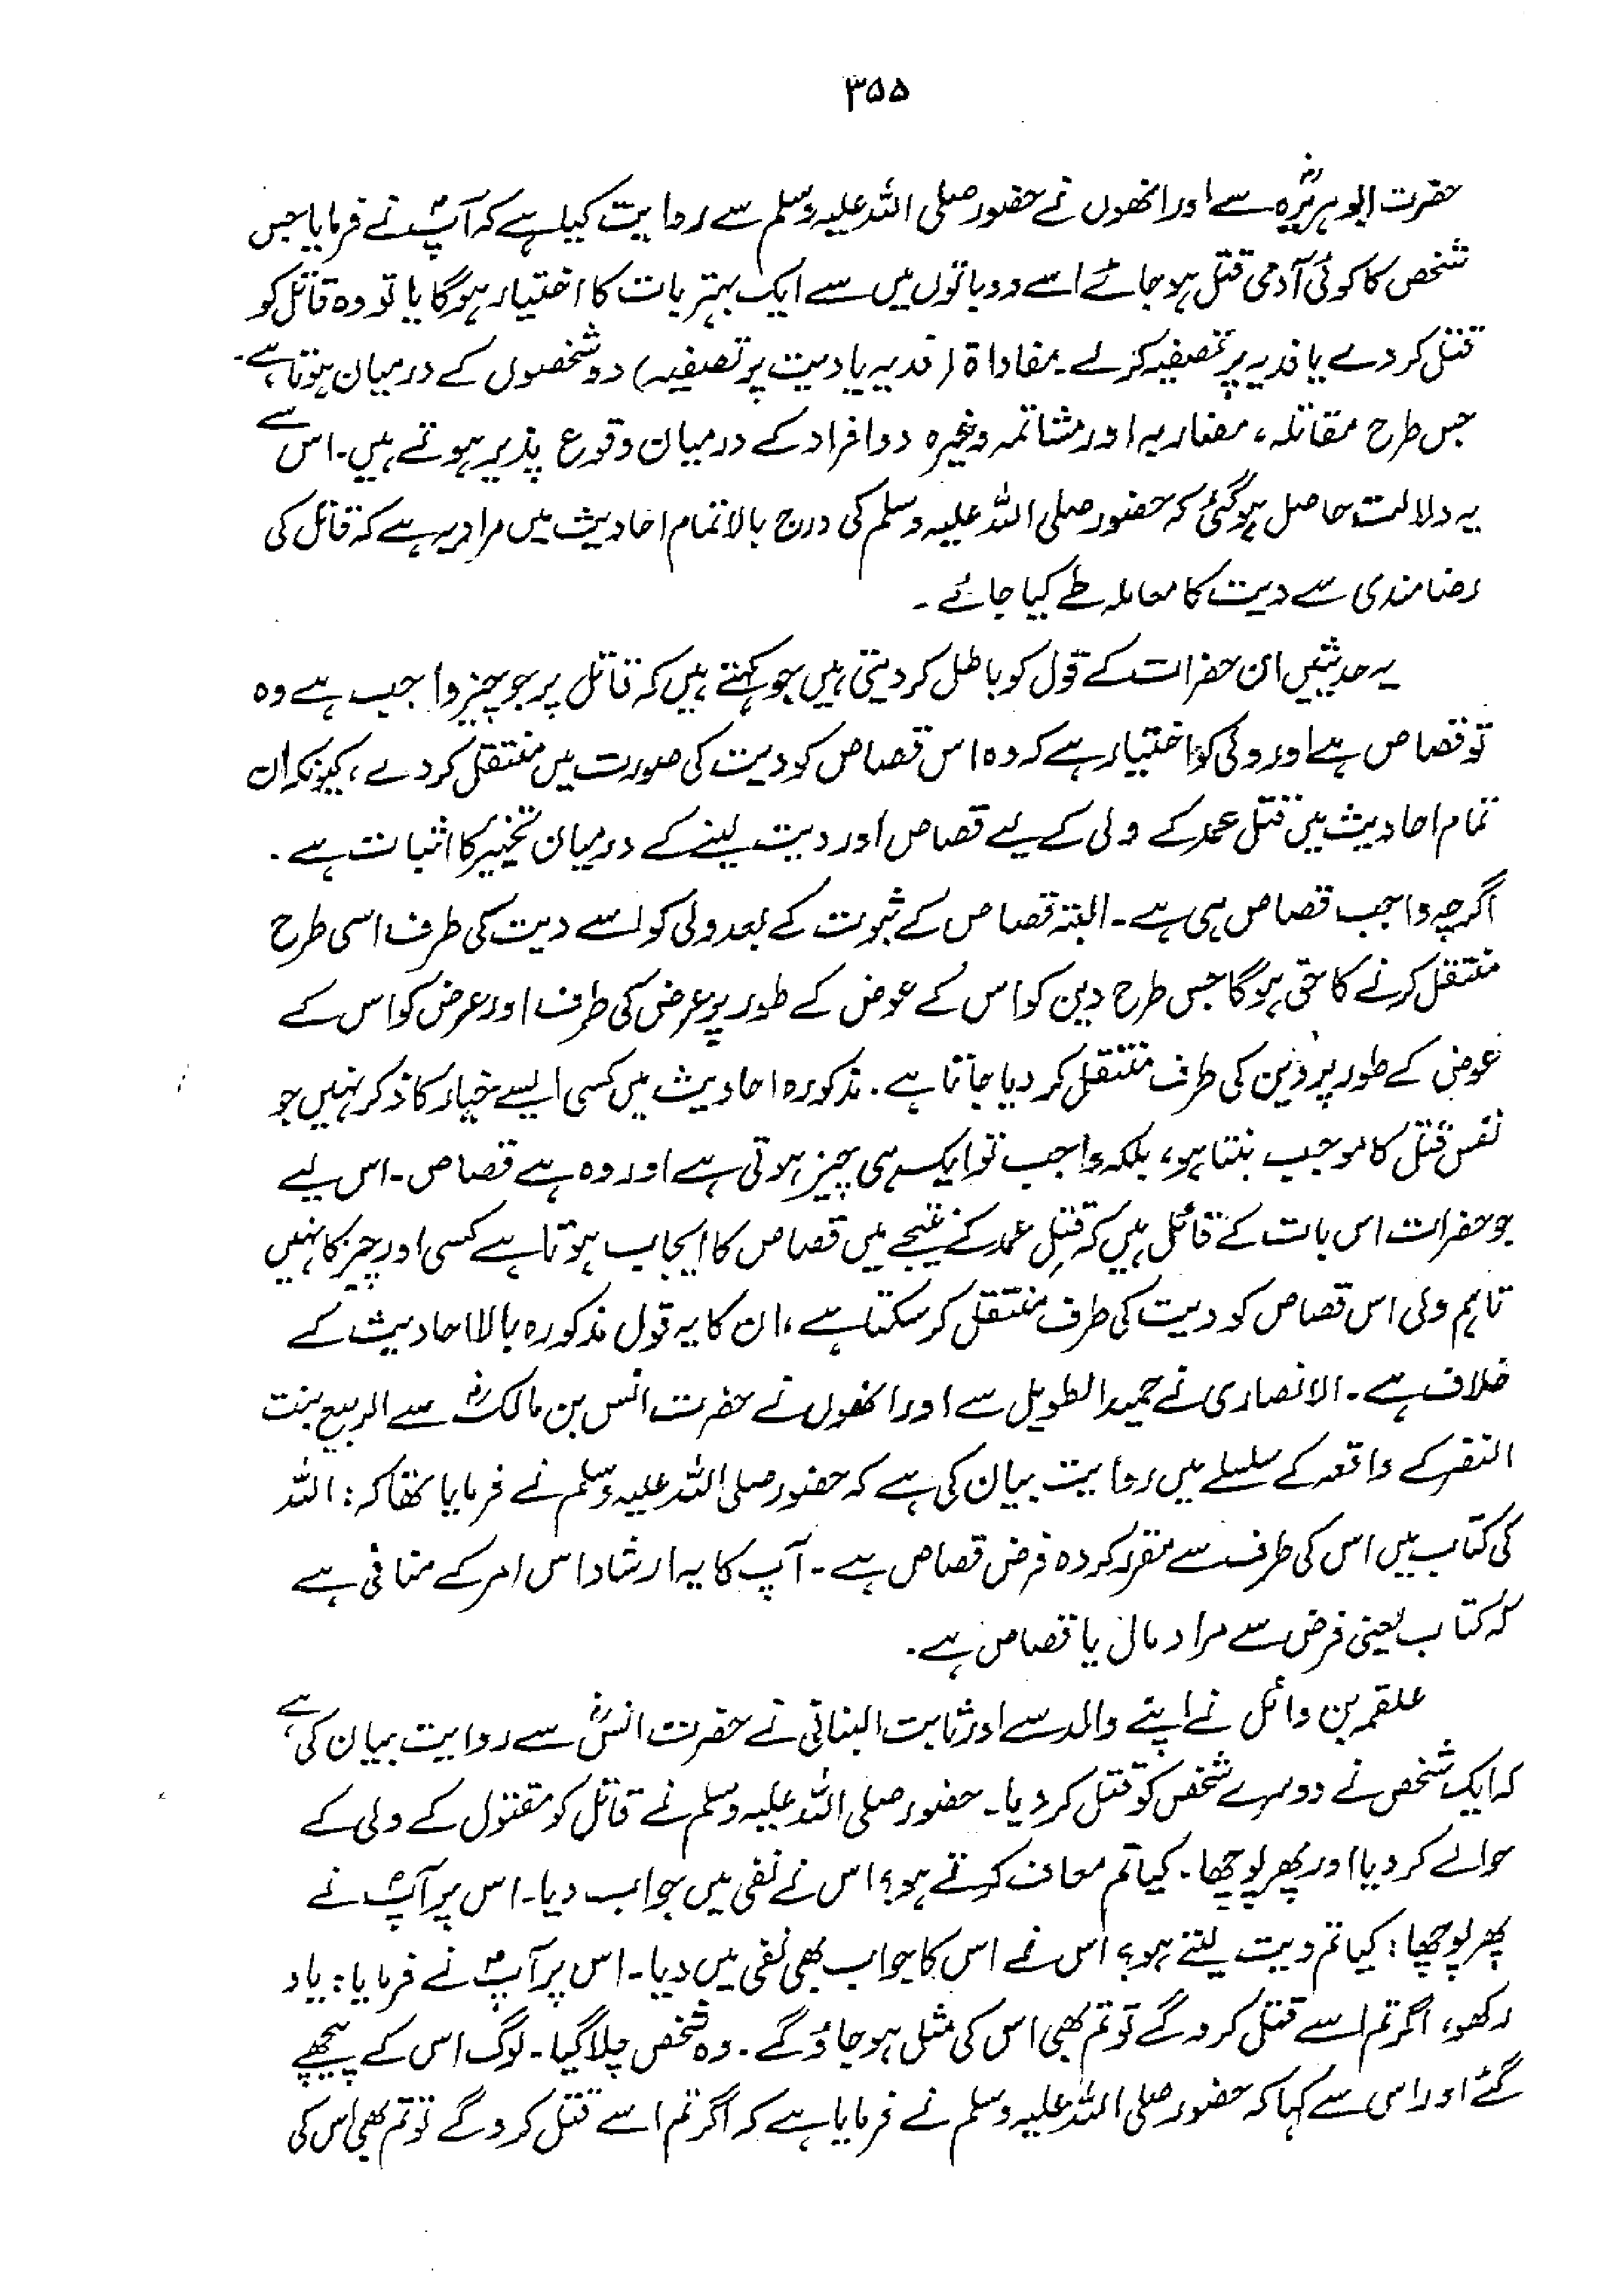 ۳۵۵
حضرت ابوہریرہؓ سے اور انھوں نے حضور صلی اللہ علیہ وسلم سے روایت کیا ہے کہ آپؐ نے فرمایا جس
شخص کا کوئی آدمی قتل ہو جائے اسے دو باتوں میں سے ایک بہتر بات کا اختیار ہوگا یا تو وہ قاتل کو
قتل کر دے یا فدیہ پر تصفیہ کرلے۔ مفاداۃ (فدیہ یا دیت پر تصفیہ) دو شخصوں کے درمیان ہوتا ہے۔
جس طرح مقاتلہ، مضاربہ اور مشاتمہ وغیرہ دو افراد کے درمیان وقوع پذیر ہوتے ہیں۔ اس سے
یہ دلالت حاصل ہوگئی کہ حضور صلی اللہ علیہ وسلم کی درج بالا تمام احادیث میں مراد یہ ہے کہ قاتل کی
رضامندی سے دیت کا معاملہ طے کیا جائے۔
یہ حدیثیں ان حضرات کے قول کو باطل کر دیتی ہیں جو کہتے ہیں کہ قاتل پر جو چیز واجب ہے وہ
تو قصاص ہے اور ولی کو اختیار ہے کہ وہ اس قصاص کو دیت کی صورت میں منتقل کر دے، کیونکہ ان
تمام احادیث میں قتل عمد کے ولی کے لیے قصاص اور دیت لینے کے درمیان تخییر کا اثبات ہے۔
اگرچہ واجب قصاص ہی ہے۔ البتہ قصاص کے ثبوت کے بعد ولی کو اسے دیت کی طرف اسی طرح
منتقل کرنے کا حق ہوگا جس طرح دین کو اس کے عوض کے طور پر عرض کی طرف اور عرض کو اس کے
عوض کے طور پر دین کی طرف منتقل کر دیا جاتا ہے۔ مذکورہ احادیث میں کسی ایسے خیار کا ذکر نہیں جو
نفس قتل کا موجب بنتا ہو، بلکہ واجب تو ایک ہی چیز ہوتی ہے اور وہ ہے قصاص۔ اس لیے
جو حضرات اس بات کے قائل ہیں کہ قتلِ عمد کے نتیجے میں قصاص کا ایجاب ہوتا ہے کسی اور چیز کا نہیں
تاہم ولی اس قصاص کو دیت کی طرف منتقل کر سکتا ہے، ان کا یہ قول مذکورہ بالا احادیث کے
خلاف ہے۔ الانصاری نے حمید الطویل سے اور انھوں نے حضرت انس بن مالکؓ سے الربیع بنت
النضر کے واقعہ کے سلسلے میں روایت بیان کی ہے کہ حضور صلی اللہ علیہ وسلم نے فرمایا تھا کہ: اللہ
کی کتاب میں اس کی طرف سے مقرر کردہ فرض قصاص ہے۔ آپ کا یہ ارشاد اس امر کے منافی ہے
کہ کتاب یعنی فرض سے مراد مال یا قصاص ہے۔
علقمہ بن وائل نے اپنے والد سے اور ثابت البنانی نے حضرت انسؓ سے روایت بیان کی ہے
کہ ایک شخص نے دوسرے شخص کو قتل کر دیا۔ حضور صلی اللہ علیہ وسلم نے قاتل کو مقتول کے ولی کے
حوالے کر دیا اور پھر پوچھا۔ کیا تم معاف کرتے ہو؟ اس نے نفی میں جواب دیا۔ اس پر آپؐ نے
پھر پوچھا: کیا تم دیت لیتے ہو؟ اس نے اس کا جواب بھی نفی میں دیا۔ اس پر آپؐ نے فرمایا: یاد
رکھو، اگر تم اسے قتل کر دگے تو تم بھی اس کی مثل ہو جاؤ گے۔ وہ شخص چلا گیا۔ لوگ اس کے پیچھے
گئے اور اس سے کہا کہ حضور صلی اللہ علیہ وسلم نے فرمایا ہے کہ اگر تم اسے قتل کر دوگے تو تم بھی اس کی